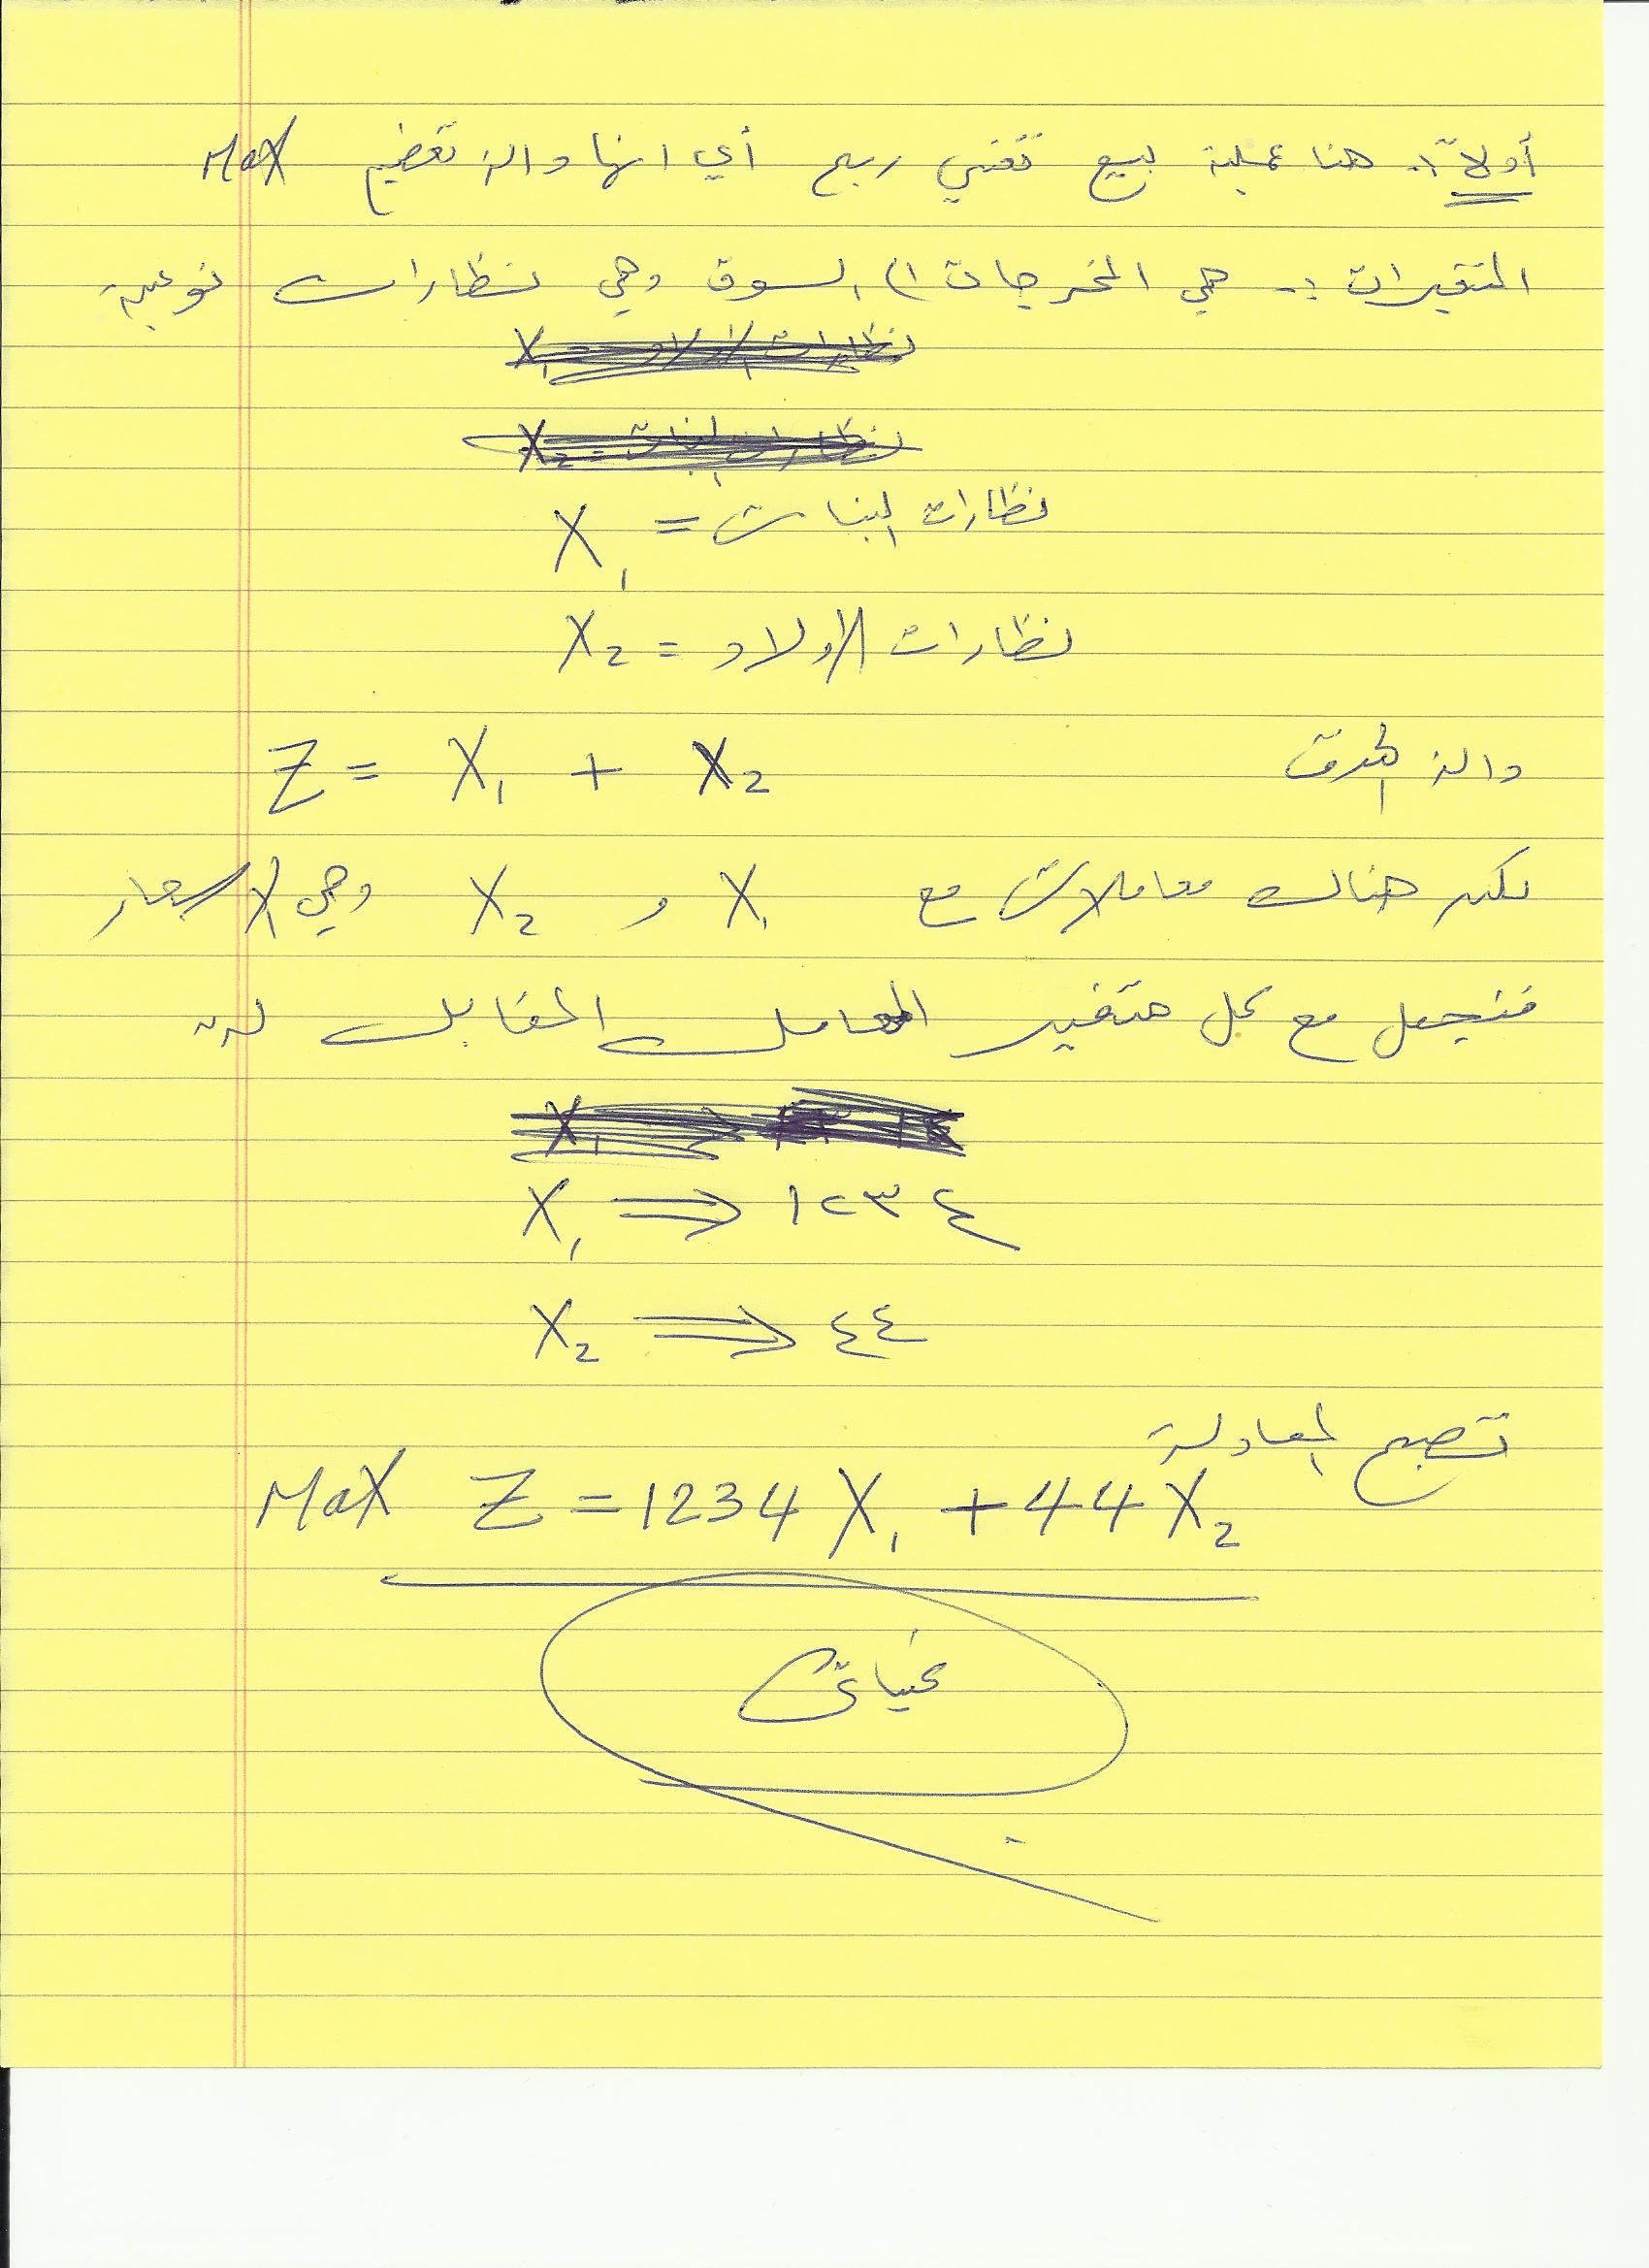 أولاً :. هنا عملية بيع تعني ربح أي انها دالة تعظيم Max
المتغيرات :. هي المخرجات الى السوق وهي نظارات نوعين
نظارات البنات = X₁
نظارات الاولاد = X₂
دالة الهدف Z = X₁ + X₂
لكن هناك معاملات مع X₁ و X₂ وهي الاسعار
فنجعل مع كل متغير المعامل المقابل له
X₁ ⇒ ١٢٣٤
X₂ ⇒ ٤٤
تصبح المعادلة
Max Z = 1234 X₁ + 44 X₂
تحياتي